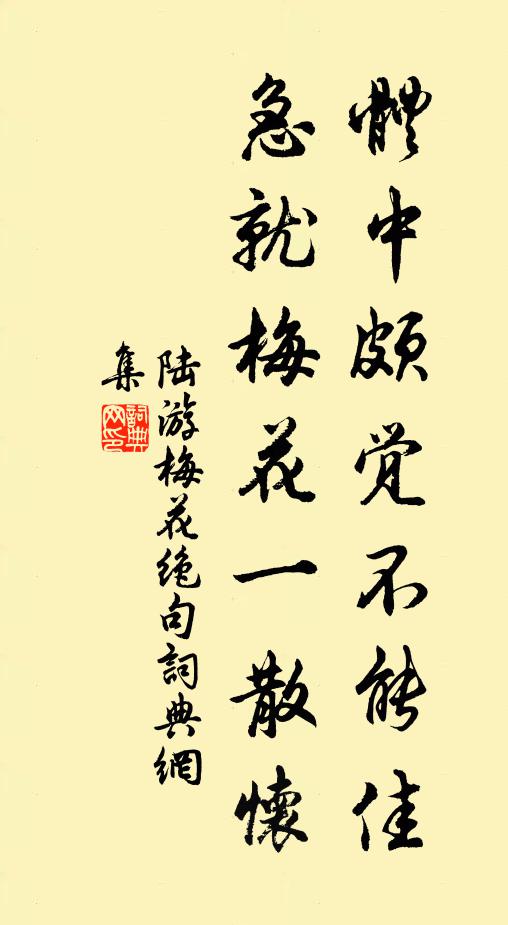 體中頗觉不能佳
急就梅花一散懷
陆游梅花绝句詞典網
集
詞典网印